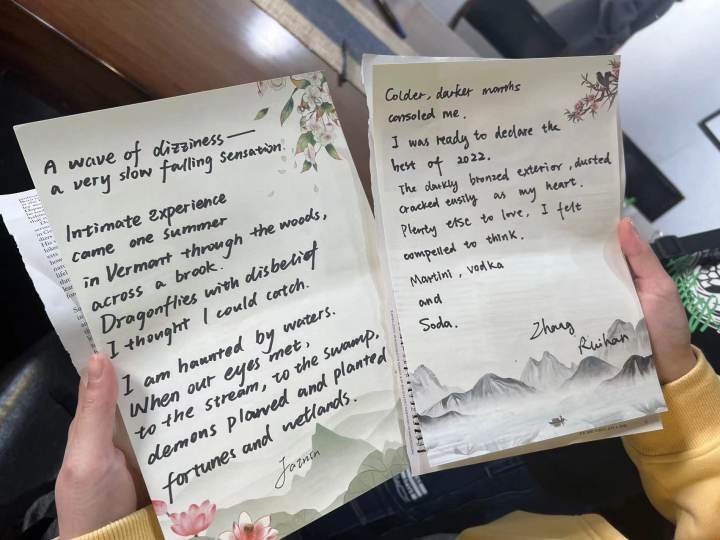 A wave of dizziness—
a very slow falling sensation.
Intimate experience
came one summer
in Vermont through the woods,
across a brook.
Dragonflies with disbelief
I thought I could catch.
I am haunted by waters.
When our eyes met,
to the stream, to the swamp,
demons plowed and planted
fortunes and wetlands.
Jazmin
Colder, darker months
consoled me.
I was ready to declare the
best of 2022.
The darkly bronzed exterior, dusted
cracked easily as my heart.
Plenty else to love, I felt
compelled to think.
Martini, vodka
and
Soda.
Zhang
Ruihan